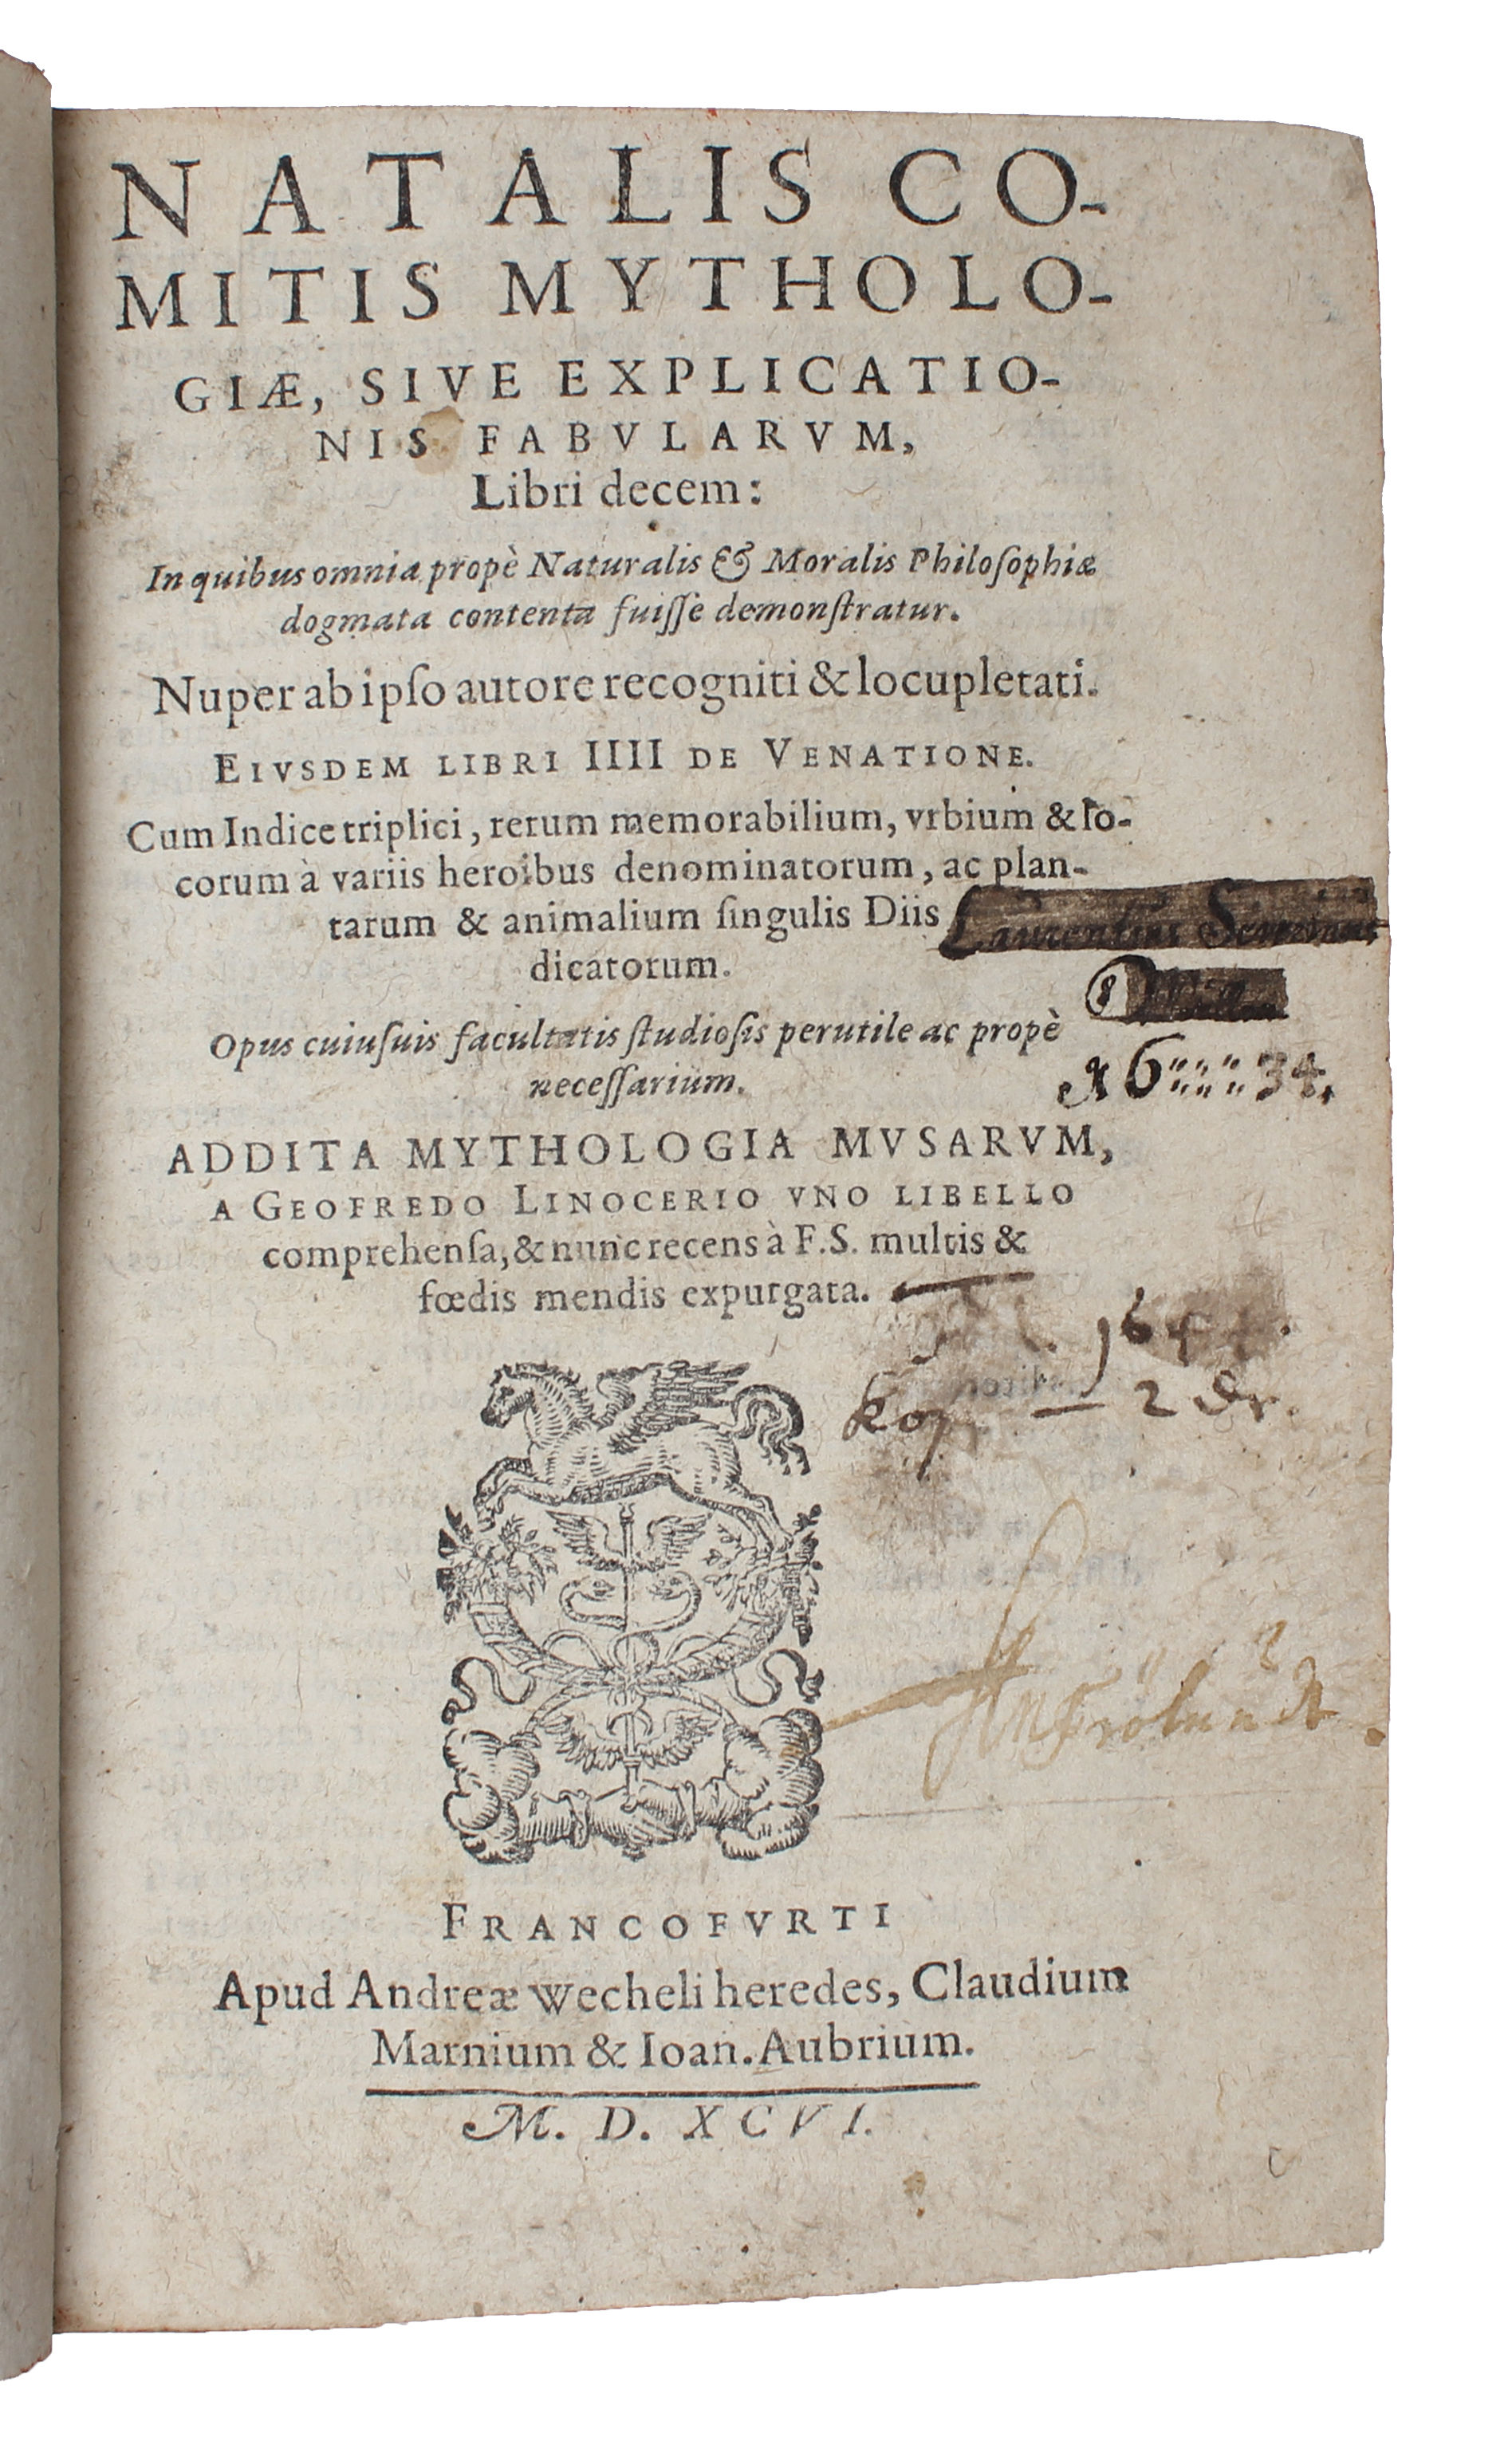 NATALIS CO-
MITIS MYTHOLO-
GIÆ, SIVE EXPLICATIO-
NIS FABVLARVM,
Libri decem:
In quibus omnia propè Naturalis & Moralis Philoſophiæ
dogmata contenta fuiſſe demonſtratur.
Nuper ab ipſo autore recogniti & locupletati.
EIVSDEM LIBRI IIII DE VENATIONE.
Cum Indice triplici, rerum memorabilium, vrbium & lo-
corum à variis heroibus denominatorum, ac plan-
tarum & animalium ſingulis Diis
Laurentius
dicatorum.
Opus cuiuſuis facultatis ſtudioſis perutile ac propè
neceſſarium.
6 34.
ADDITA MYTHOLOGIA MVSARVM,
A GEOFREDO LINOCERIO VNO LIBELLO
comprehenſa, & nunc recens à F.S. multis &
fœdis mendis expurgata.
kop — 2 dr.
FRANCOFVRTI
Apud Andreæ Wecheli heredes, Claudium
Marnium & Ioan. Aubrium.
M. D. XCVI.